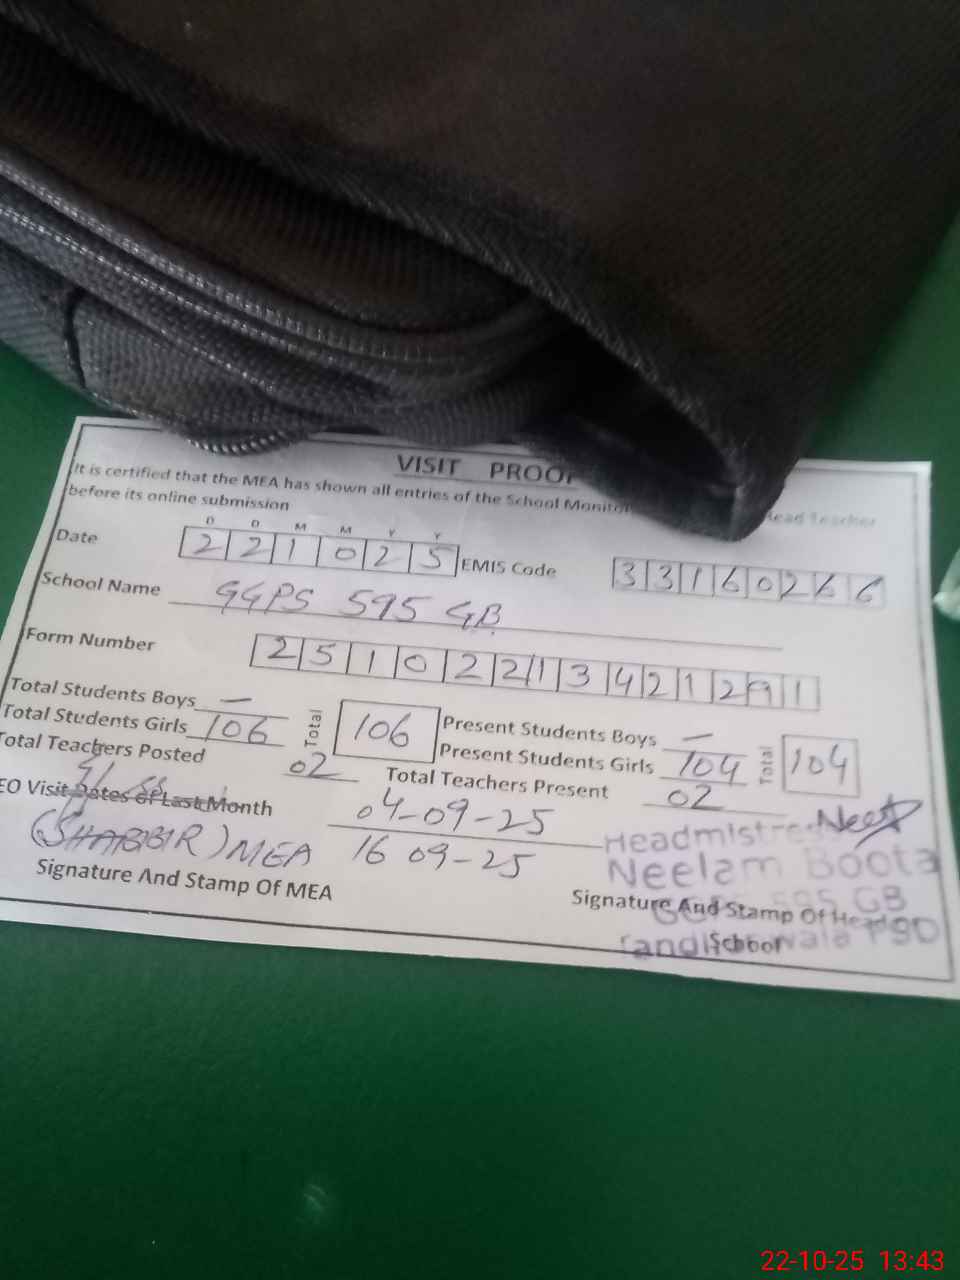 VISIT PROOF
It is certified that the MEA has shown all entries of the School Monitor Head Teacher
before its online submission
D D M M Y Y
Date 2 2 1 0 2 5 EMIS Code 3 3 1 6 0 2 6 6
School Name GGPS 595 GB
Form Number 2 5 1 0 2 2 1 3 4 2 1 2 9 1
Total Students Boys — Total 106 Present Students Boys — Total 104
Total Students Girls 106 Present Students Girls 104
Total Teachers Posted 02 Total Teachers Present 02
EO Visit Dates of Last Month 04-09-25
(SHABBIR) MEA 16 09-25
Signature And Stamp Of MEA
Headmistress
Neelam Boota
595 GB
Signature And Stamp Of Head
School
22-10-25 13:43